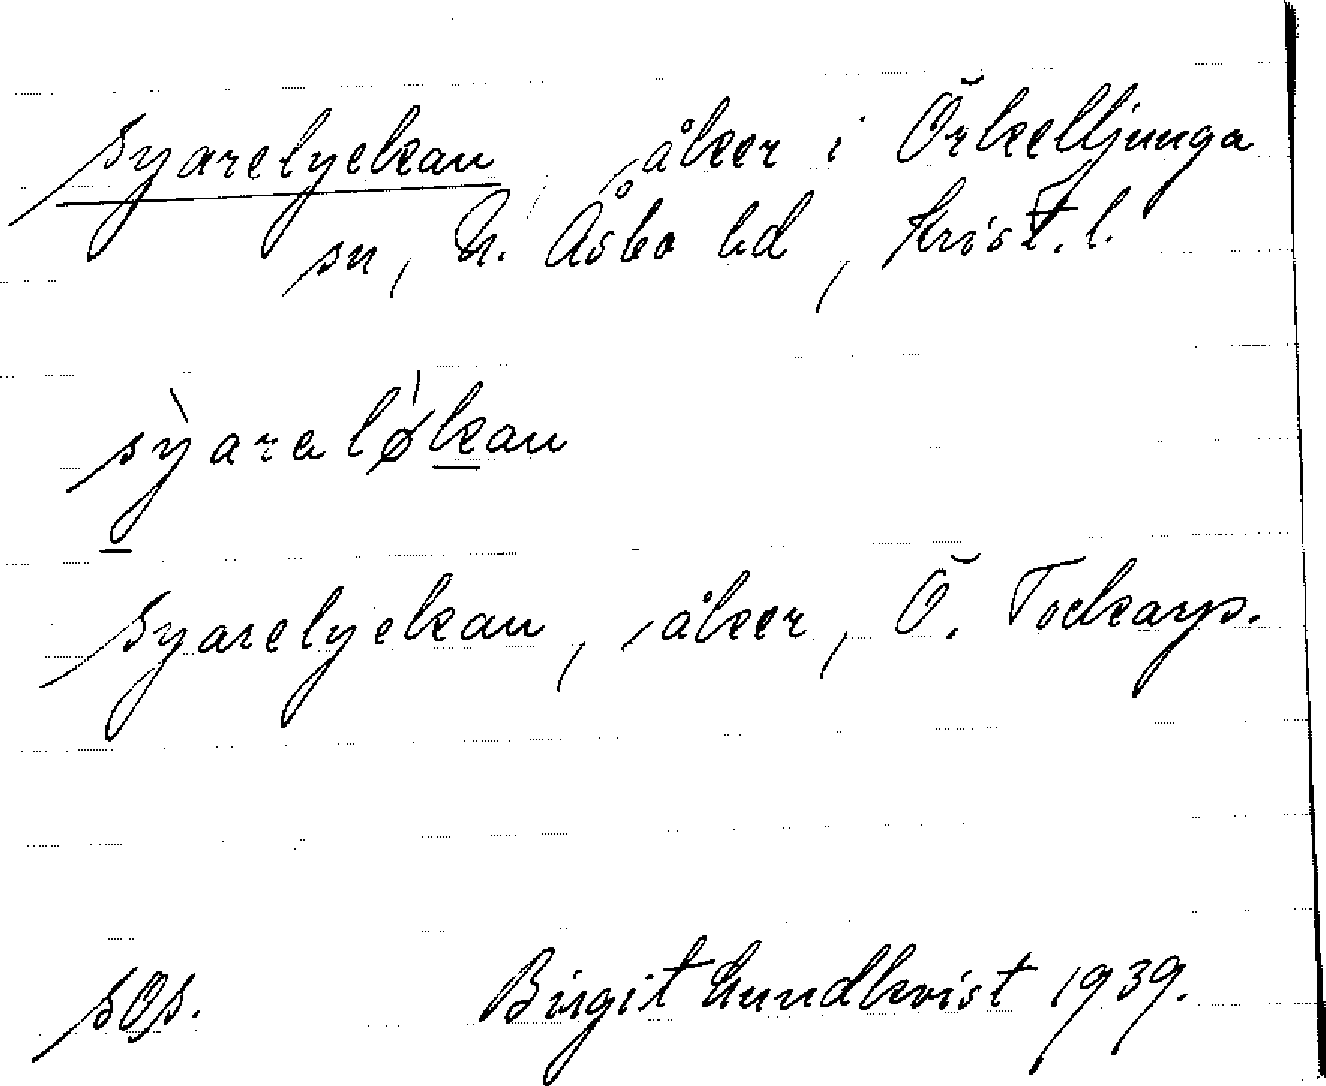 Syarelyckan, åker i Örkelljunga
sn, N. Åsbo hd, Krist. l.
sỳaraløkan
Syarelyckan, åker, Ö. Tockarp.
sOs. Birgit Lundkvist 1939.